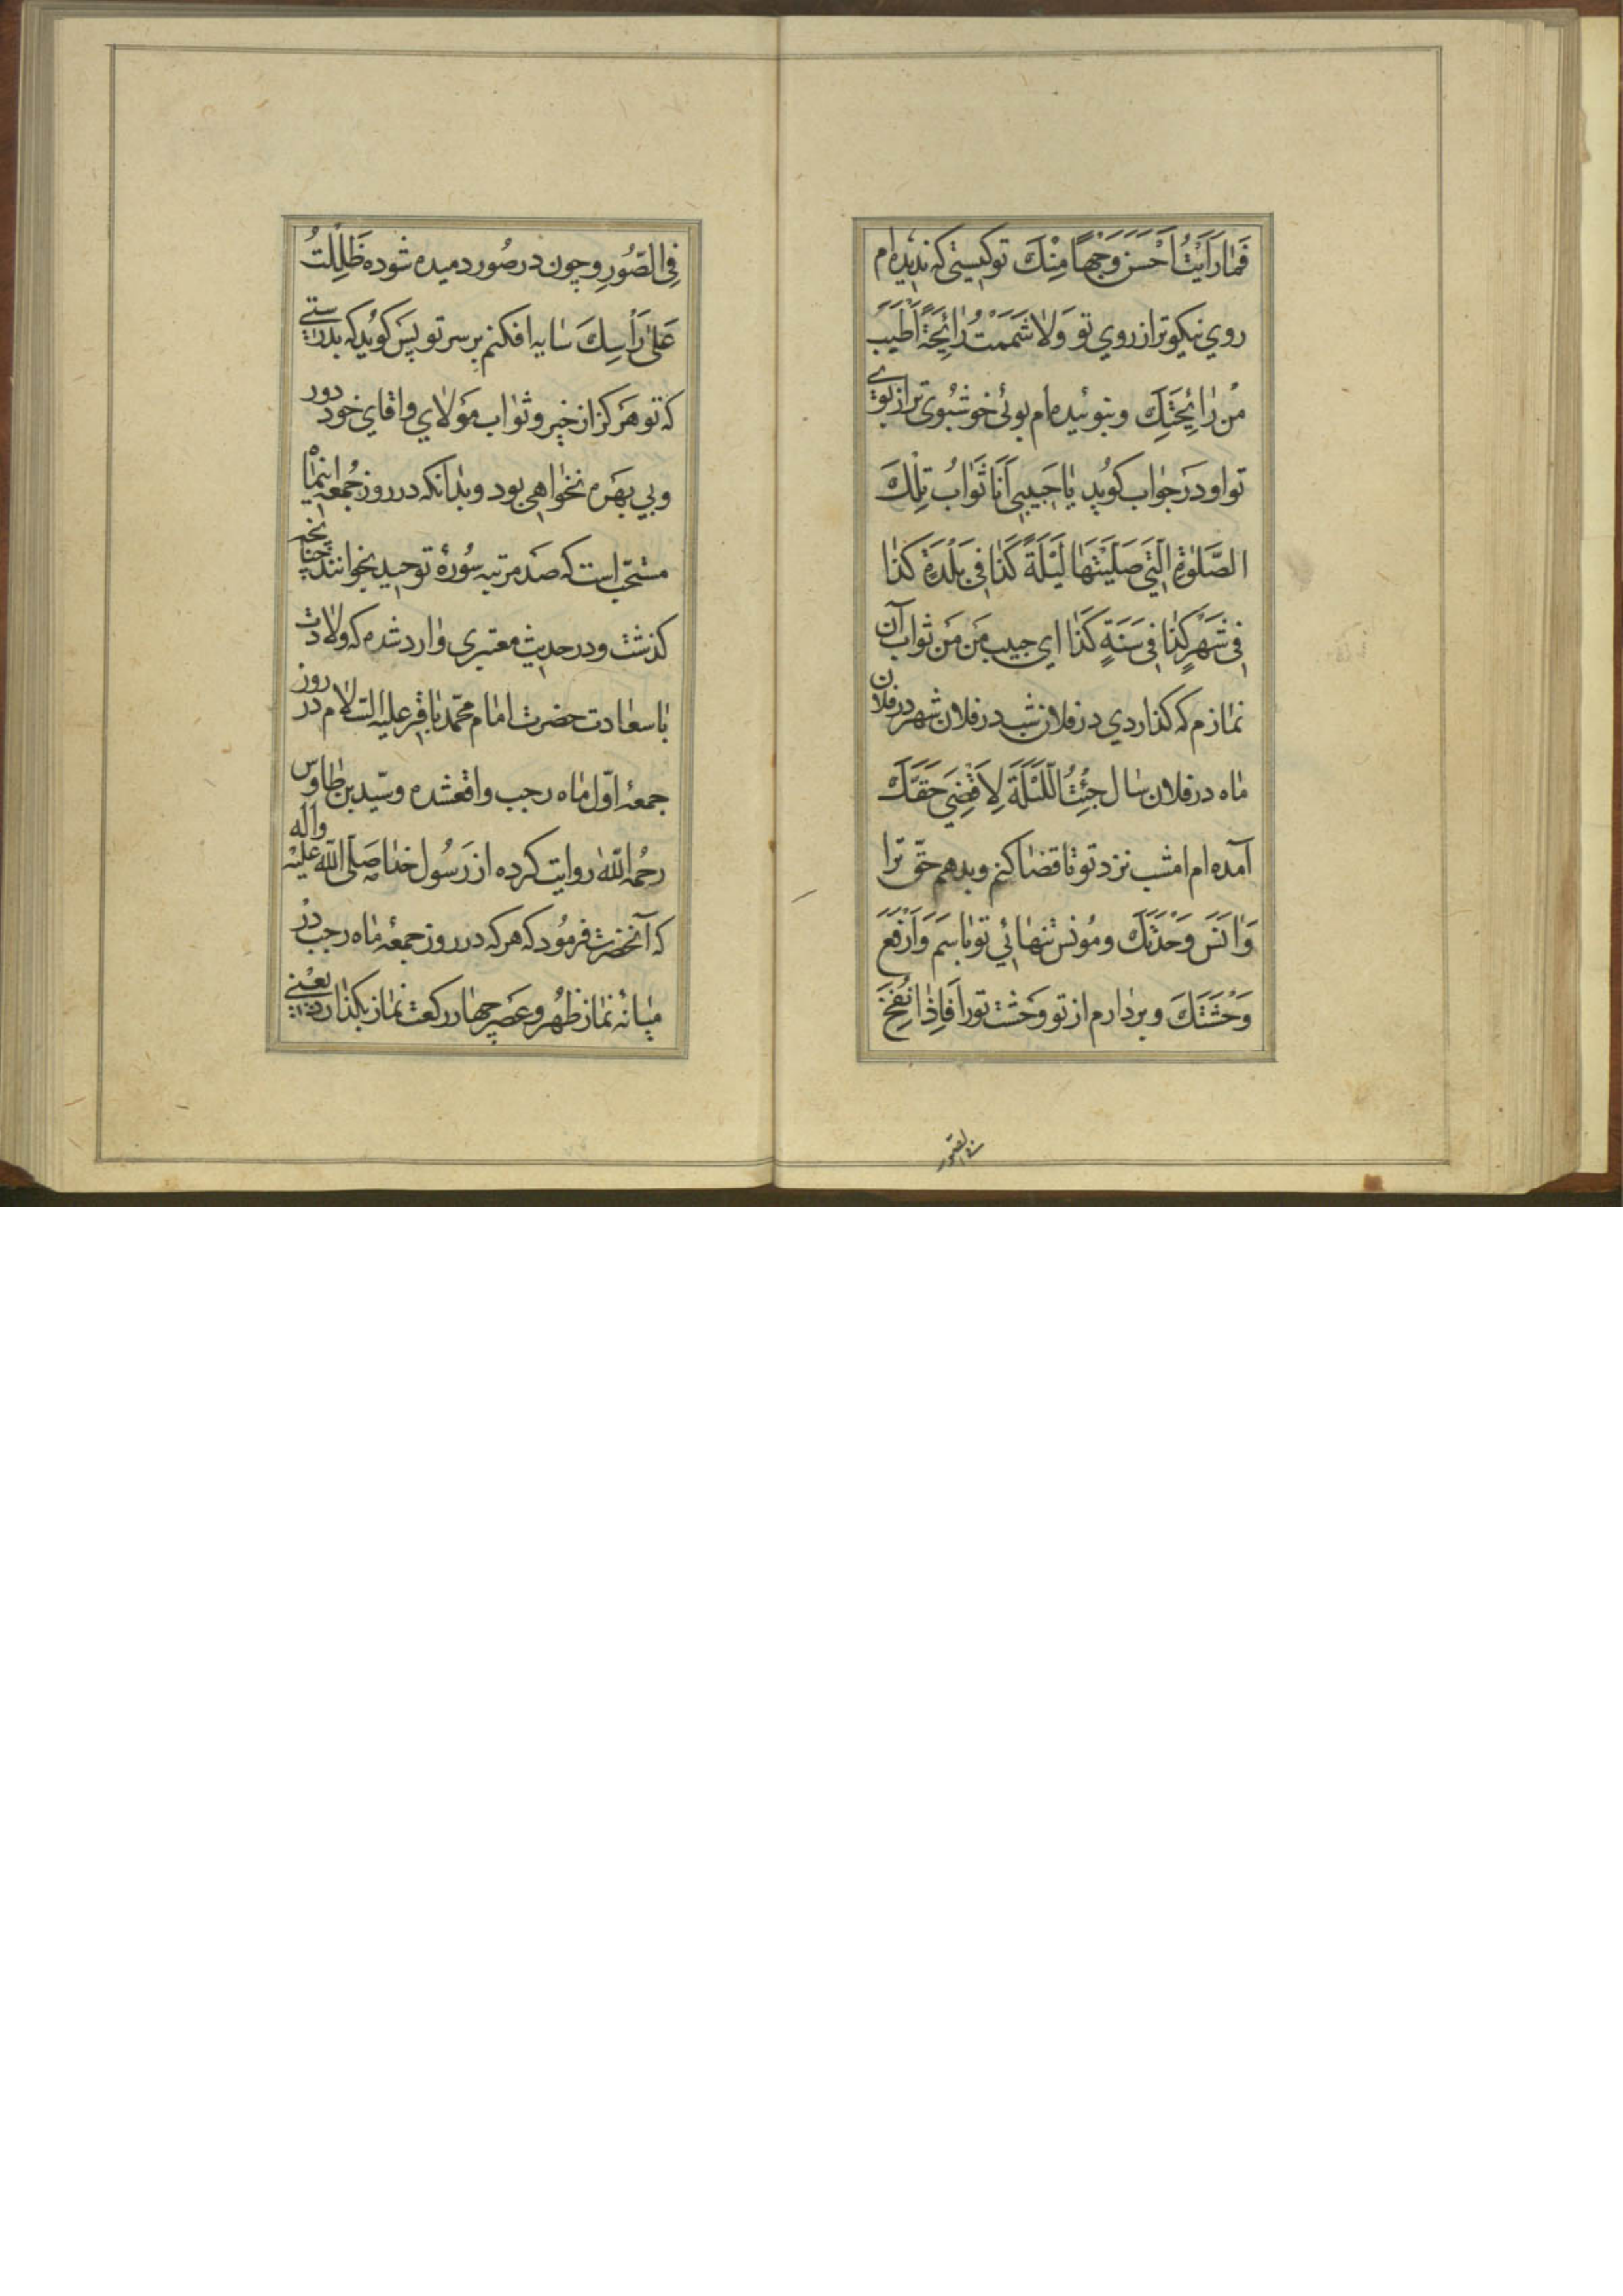 فَمَا رَاَیْتُ اَحْسَنَ وَجْهًا مِنْكَ تو کیستی که ندیده‌ام
روي نیکوتر از روي تو وَلَا شَمَمْتُ رَائِحَةً اَطْیَبَ
مِنْ رَائِحَتِكَ و نبوئیده‌ام بوئی خوشبوی تر از بوے
تو او در جواب کوید یَا حَبِیبِی اَنَا ثَوَابُ تِلْكَ
الصَّلوٰةِ الَّتِي صَلَّیْتَهَا لَیْلَةَ کَذَا فِی بَلْدَةِ کَذَا
فِی شَهْرِ کَذَا فِی سَنَةٍ کَذَا اي حبیب من من ثواب آن
نمازم که کذاردي در فلان شب در فلان شهر در فلان
ماه در فلان سال جِئْتُ اللَّیْلَةَ لِاَقْضِيَ حَقَّكَ
آمده‌ام امشب نزد تو تا قضا کنم و بدهم حقّ ترا
وَاٰنَسَ وَحْدَتَكَ و مُونس تنهائي تو باسم وَاَرْفَعَ
وَحْشَتَكَ و بردارم از تو وحشت تورا فَاِذَا نُفِخَ
فی الصّور
فِی الصُّورِ و چون در صُور دمیده شوده ظَلَّلْتُ
عَلٰی رَاْسِكَ سایه افکنم بر سر تو پس کوید که بدرستے
که تو هرکز از خیر و ثواب مولاي و اقاي خود دور
و بي بهره نخواهی بود و بدانکه در روز جُمعه اینماه
مستحبّ است که صد مرتبه سُورهٔ توحید بخوانند چنانچه
کذشت و در حدیث معتبری وارد شده که ولادت
با سعادت حضرت امام محمّد باقر علیه السّلام در روز
جمعهٔ اوّل ماه رجب واقعشده و سیّد بن طاوس
رحمه اللّٰه روایت کرده از رسُول خدا صَلَّی اللّٰه عَلَیْه وآله
که آنحضرت فرمُود که هرکه در روز جمعهٔ ماه رجب در
میانهٔ نماز ظُهر و عَصر چهار رکعت نماز بکذارد یعنے